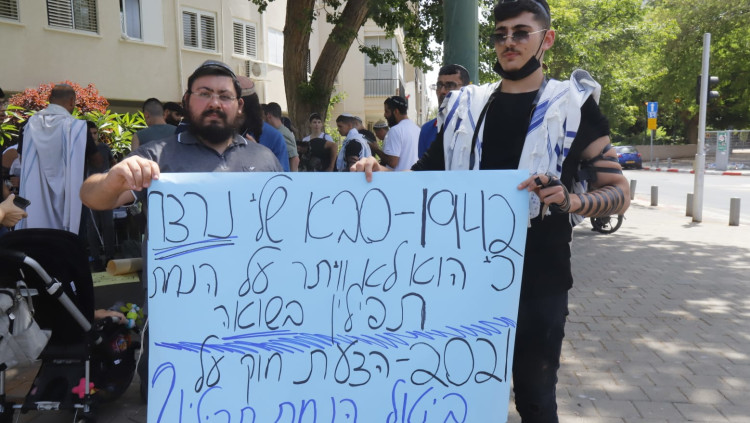 1942-סבא שלי נרצח
כי הוא לא וויתר על הנחת
תפילין בשואה
2021-הצעת חוק על
ביטול הנחת תפילין?